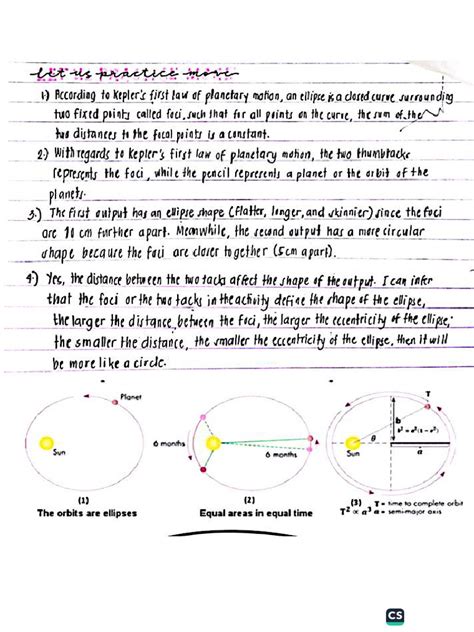 let us practice more
1.) According to Kepler's first law of planetary motion, an ellipse is a closed curve surrounding
two fixed points called foci, such that for all points on the curve, the sum of the
two distances to the focal points is a constant.
2.) With regards to Kepler's first law of planetary motion, the two thumbtacks
represents the foci, while the pencil represents a planet or the orbit of the
planets.
3.) The first output has an ellipse shape (flatter, longer, and skinnier) since the foci
are 10 cm further apart. Meanwhile, the second output has a more circular
shape because the foci are closer together (5cm apart).
4) Yes, the distance between the two tacks affect the shape of the output. I can infer
that the foci or the two tacks in the activity define the shape of the ellipse,
the larger the distance between the foci, the larger the eccentricity of the ellipse;
the smaller the distance, the smaller the eccentricity of the ellipse, then it will
be more like a circle.
Planet
Sun
(1)
The orbits are ellipses
6 months
6 months
(2)
Equal areas in equal time
T
b
b² = a²(1 - e²)
θ
a
Sun
(3) T = time to complete orbit
T² ∝ a³ a = semi-major axis
CS